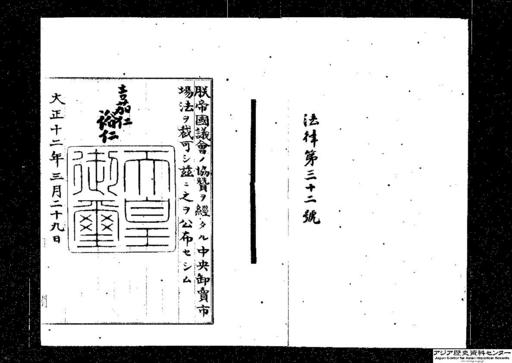 法律第三十二號
朕帝國議會ノ協贊ヲ經タル中央卸賣市
場法ヲ裁可シ茲ニ之ヲ公布セシム
嘉仁
裕仁
天皇
御璽
大正十二年三月二十九日
アジア歴史資料センター
Japan Center for Asian Historical Records